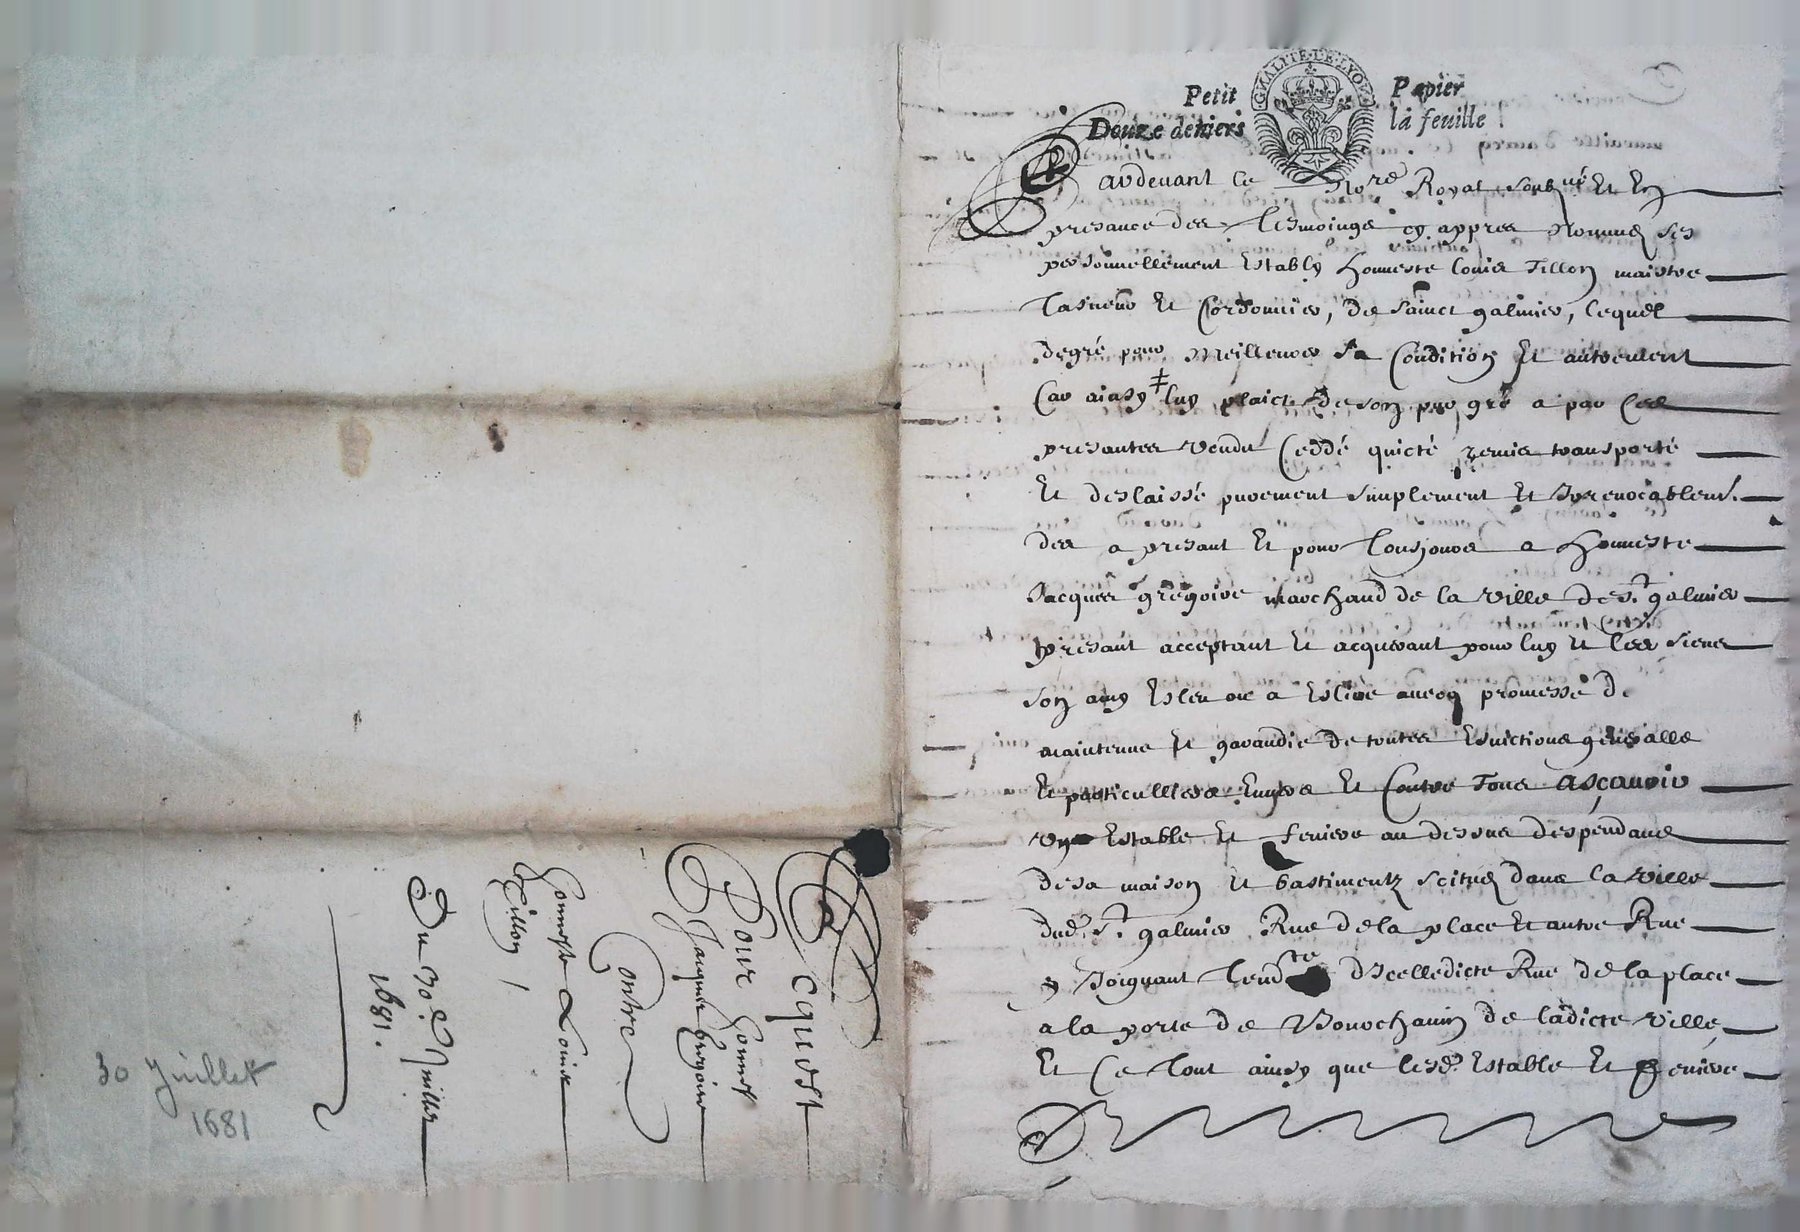 Acquost
Pour honneste
Jacques Gregoire
Contre
honneste Louis
Tillon /
Du 30e Juillet
1681.
30 Juillet
1681
GNALITE DE LYON
Petit Papier
Douze deniers la feuille
Pardevant le Nore Royal soubzné Et En
presance des Tesmoings cy appres Nommez ses
personnellement Estably honneste Louis Tillon maistre
Tasneur Et Cordonnier, de sainct galmier, lequel
degré pour Meilleurer sa Condition Et autrement
Car ainsy luy plaict de son pur gré a par Ces
presantes vendu Ceddé quicté remis transporté
Et deslaissé purement simplement Et Irrevocablemt.
des a presant Et pour Tousjours a honneste
Jacques gregoire marchand de la ville de St galmier
presant acceptant Et acquerant pour luy Et les siens
son amy Esleu ou a Eslire avecq promesse de
maintenue Et garandie de toutes Esvictions generalle
Et particulliere Envers Et Contre Tous asçavoir
vn Estable Et feniere au dessus despendans
de sa maison Et bastimentz scituez dans la ville
dud. St galmier Rue de la place Et autre Rue
y Joignant Tendte d'Icelledicte Rue de la place
a la porte de de ladicte ville
Et Ce Tout ainsy que lesd. Estable Et feniere